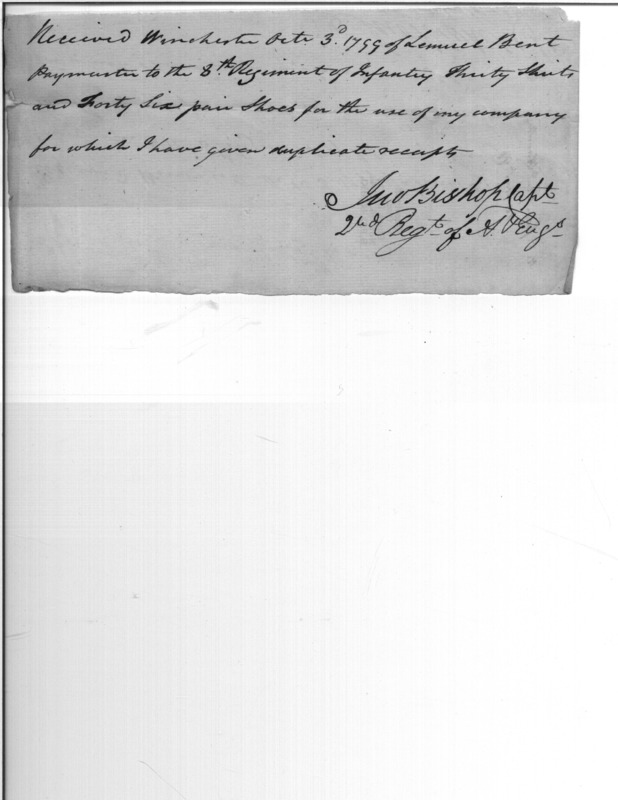 Received Winchester Octr 3d. 1799 of Lemuel Bent
Paymaster to the 8th. Regiment of Infantry Thirty Shirts
and Forty Six pair Shoes for the use of my company
for which I have given duplicate receipts
Jno Bishop Capt
2nd Regt of A. & Engs